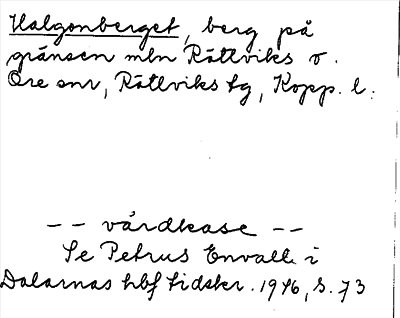 Halgonberget, berg på
gränsen mln Rättviks o.
Ore snr, Rättviks tg, Kopp. l.
-- vårdkase --
Se Petrus Envall i
Dalarnas hbf tidskr. 1946, s. 73